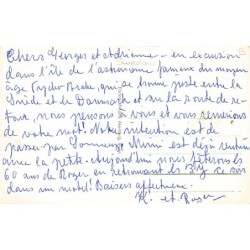 Chers Georges et Adrienne – en excursion
dans l'île de l'astronome fameux du moyen
âge Tycho-Brahe, qui se trouve juste entre la
Suède et le Danemark et sur la route de
nous pensons à vous et vous remercions
de votre mot! Notre intention est de
passer par Mimi est déjà rentrée
avec la petite. Aujourd'hui nous fêterons les
60 ans de Roger en retrouvant les ce soir
dans un motel! Baisers affectueux
et Roger